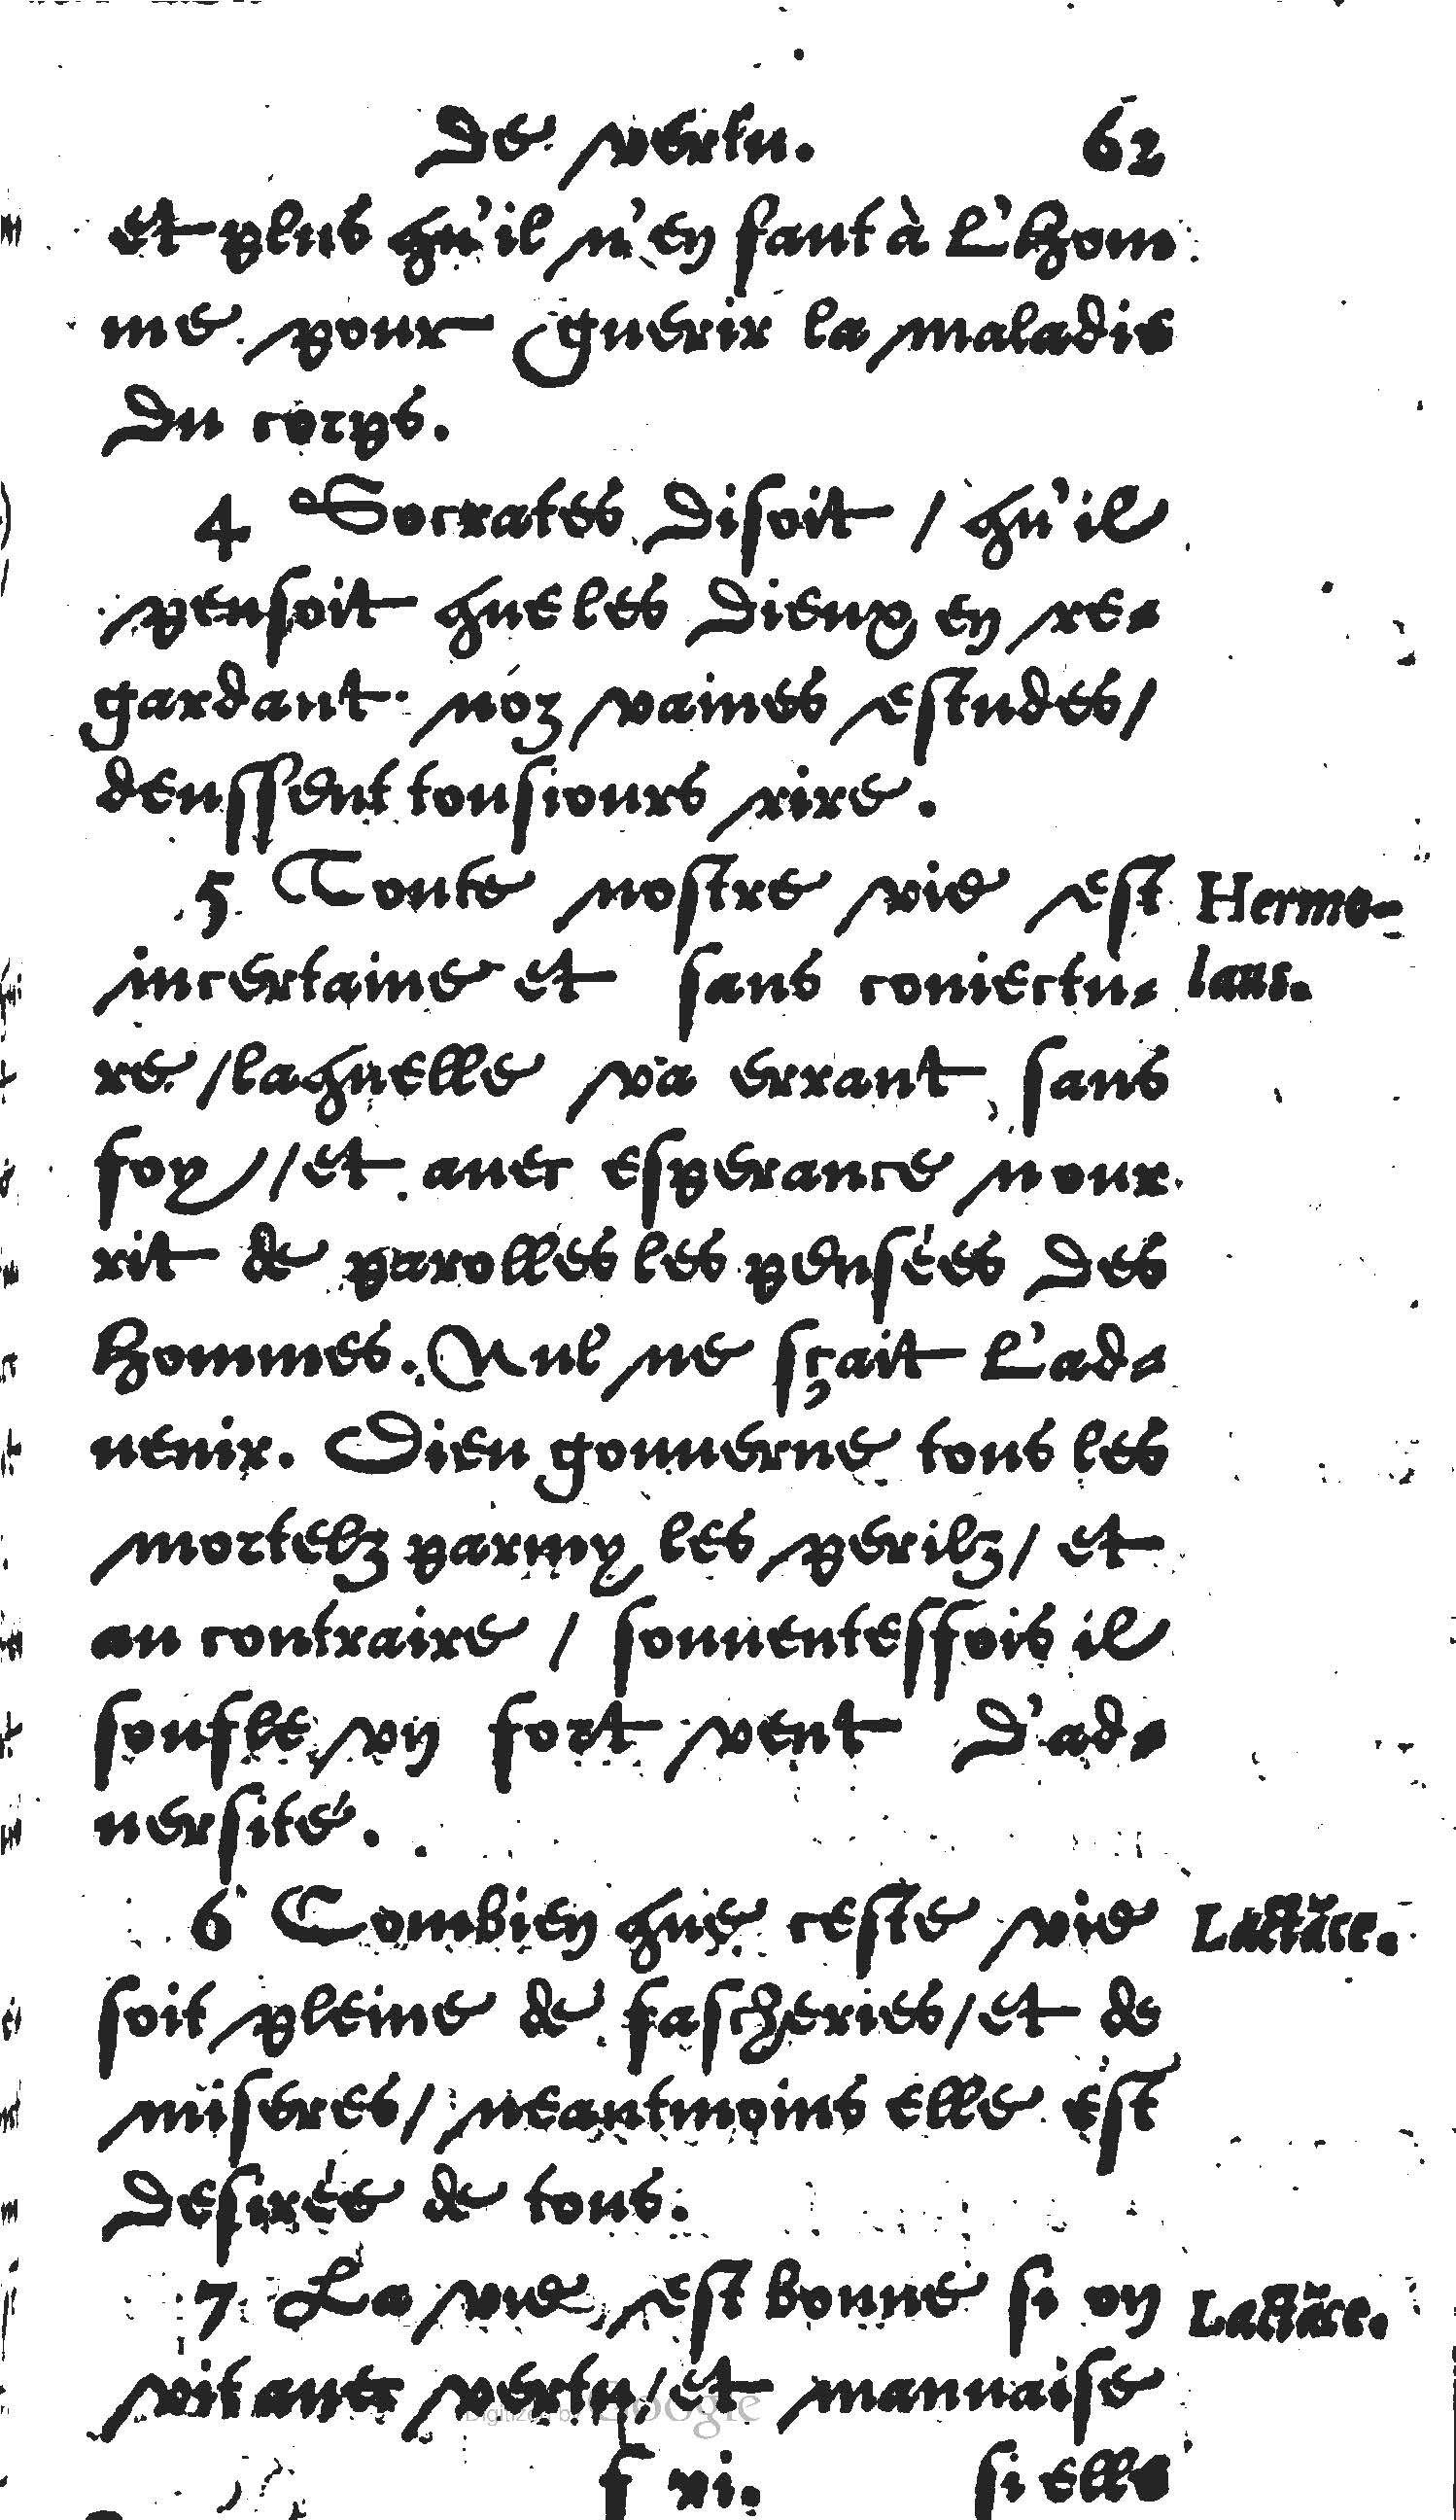 De vertu. 62
et plus qu'il n'en faut à l'hom
me pour guerir la maladie
du corps.
4 Socrates disoit / qu'il
pensoit que les Dieux en re-
gardant nóz vaines estudes /
deussent tousiours rire.
5 Toute nostre vie est Hermo-
incertaine et sans coniectu- laus.
re / laquelle va errant sans
foy / et auec esperance nour
rit de parolles les pensées des
hommes. Nul ne sçait l'ad-
uenir. Dieu gouuerne tous les
mortelz parmy les perilz / et
au contraire / souuentesfois il
soufle vn fort vent d'ad-
uersité.
6 Combien que ceste vie Lactãce.
soit pleine de fascheries / et de
miseres / neantmoins elle est
desirée de tous.
7 La vie est bonne si on Lactãce.
vit auec vertu / et mauuaise
Digitized by Google
si elle